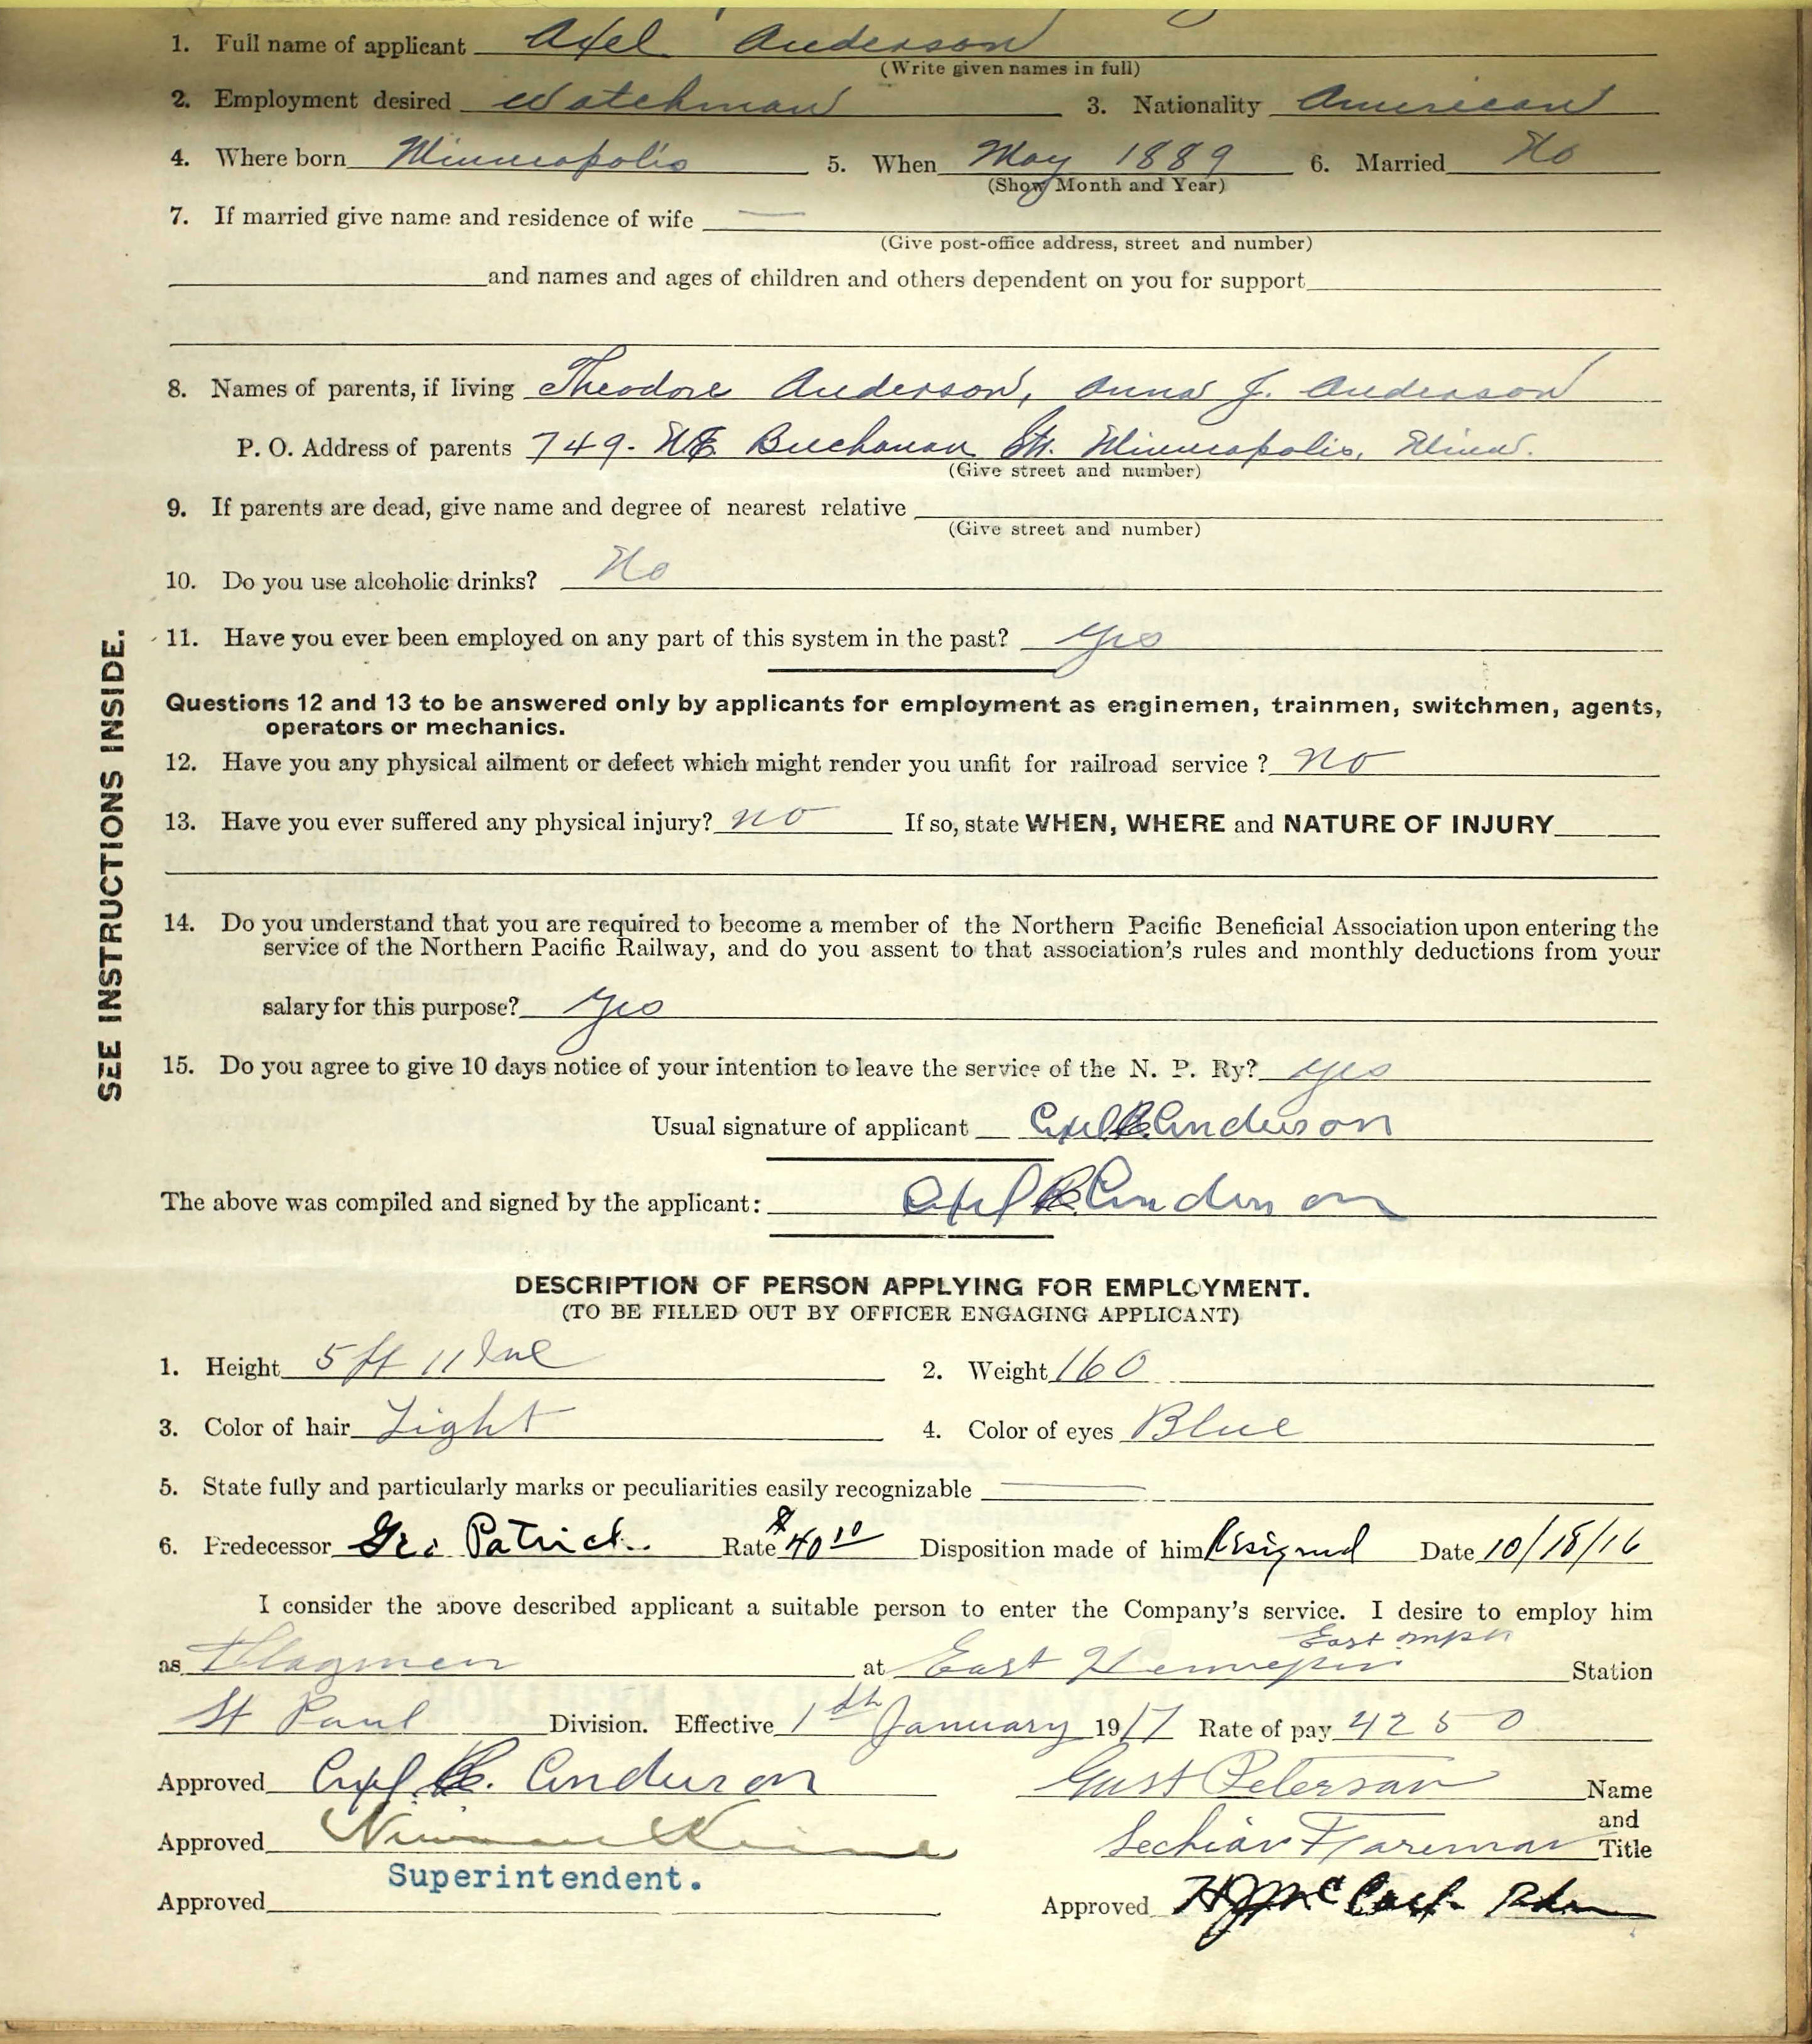 1. Full name of applicant Axel Anderson
(Write given names in full)
2. Employment desired Watchman 3. Nationality American
4. Where born Minneapolis 5. When May 1889 6. Married No
(Show Month and Year)
7. If married give name and residence of wife —
(Give post-office address, street and number)
and names and ages of children and others dependent on you for support
8. Names of parents, if living Theodore Anderson, Anna J. Anderson
P. O. Address of parents 749. NE Buchanan St. Minneapolis, Minn.
(Give street and number)
9. If parents are dead, give name and degree of nearest relative
(Give street and number)
10. Do you use alcoholic drinks? No
11. Have you ever been employed on any part of this system in the past? Yes
SEE INSTRUCTIONS INSIDE.
Questions 12 and 13 to be answered only by applicants for employment as enginemen, trainmen, switchmen, agents,
operators or mechanics.
12. Have you any physical ailment or defect which might render you unfit for railroad service ? no
13. Have you ever suffered any physical injury? no If so, state WHEN, WHERE and NATURE OF INJURY
14. Do you understand that you are required to become a member of the Northern Pacific Beneficial Association upon entering the
service of the Northern Pacific Railway, and do you assent to that association's rules and monthly deductions from your
salary for this purpose? Yes
15. Do you agree to give 10 days notice of your intention to leave the service of the N. P. Ry? Yes
Usual signature of applicant Axel Anderson
The above was compiled and signed by the applicant: Axel Anderson
DESCRIPTION OF PERSON APPLYING FOR EMPLOYMENT.
(TO BE FILLED OUT BY OFFICER ENGAGING APPLICANT)
1. Height 5 ft 11 2. Weight 160
3. Color of hair Light 4. Color of eyes Blue
5. State fully and particularly marks or peculiarities easily recognizable —
6. Predecessor Geo Patrick Rate $40 Disposition made of him Resigned Date 10/18/16
I consider the above described applicant a suitable person to enter the Company's service. I desire to employ him
East
as Flagman at East Hennepin Station
St Paul Division. Effective 1th January 1917 Rate of pay 4250
Approved Axel Anderson Gust Peterson Name
and
Approved Section Foreman Title
Superintendent.
Approved Approved